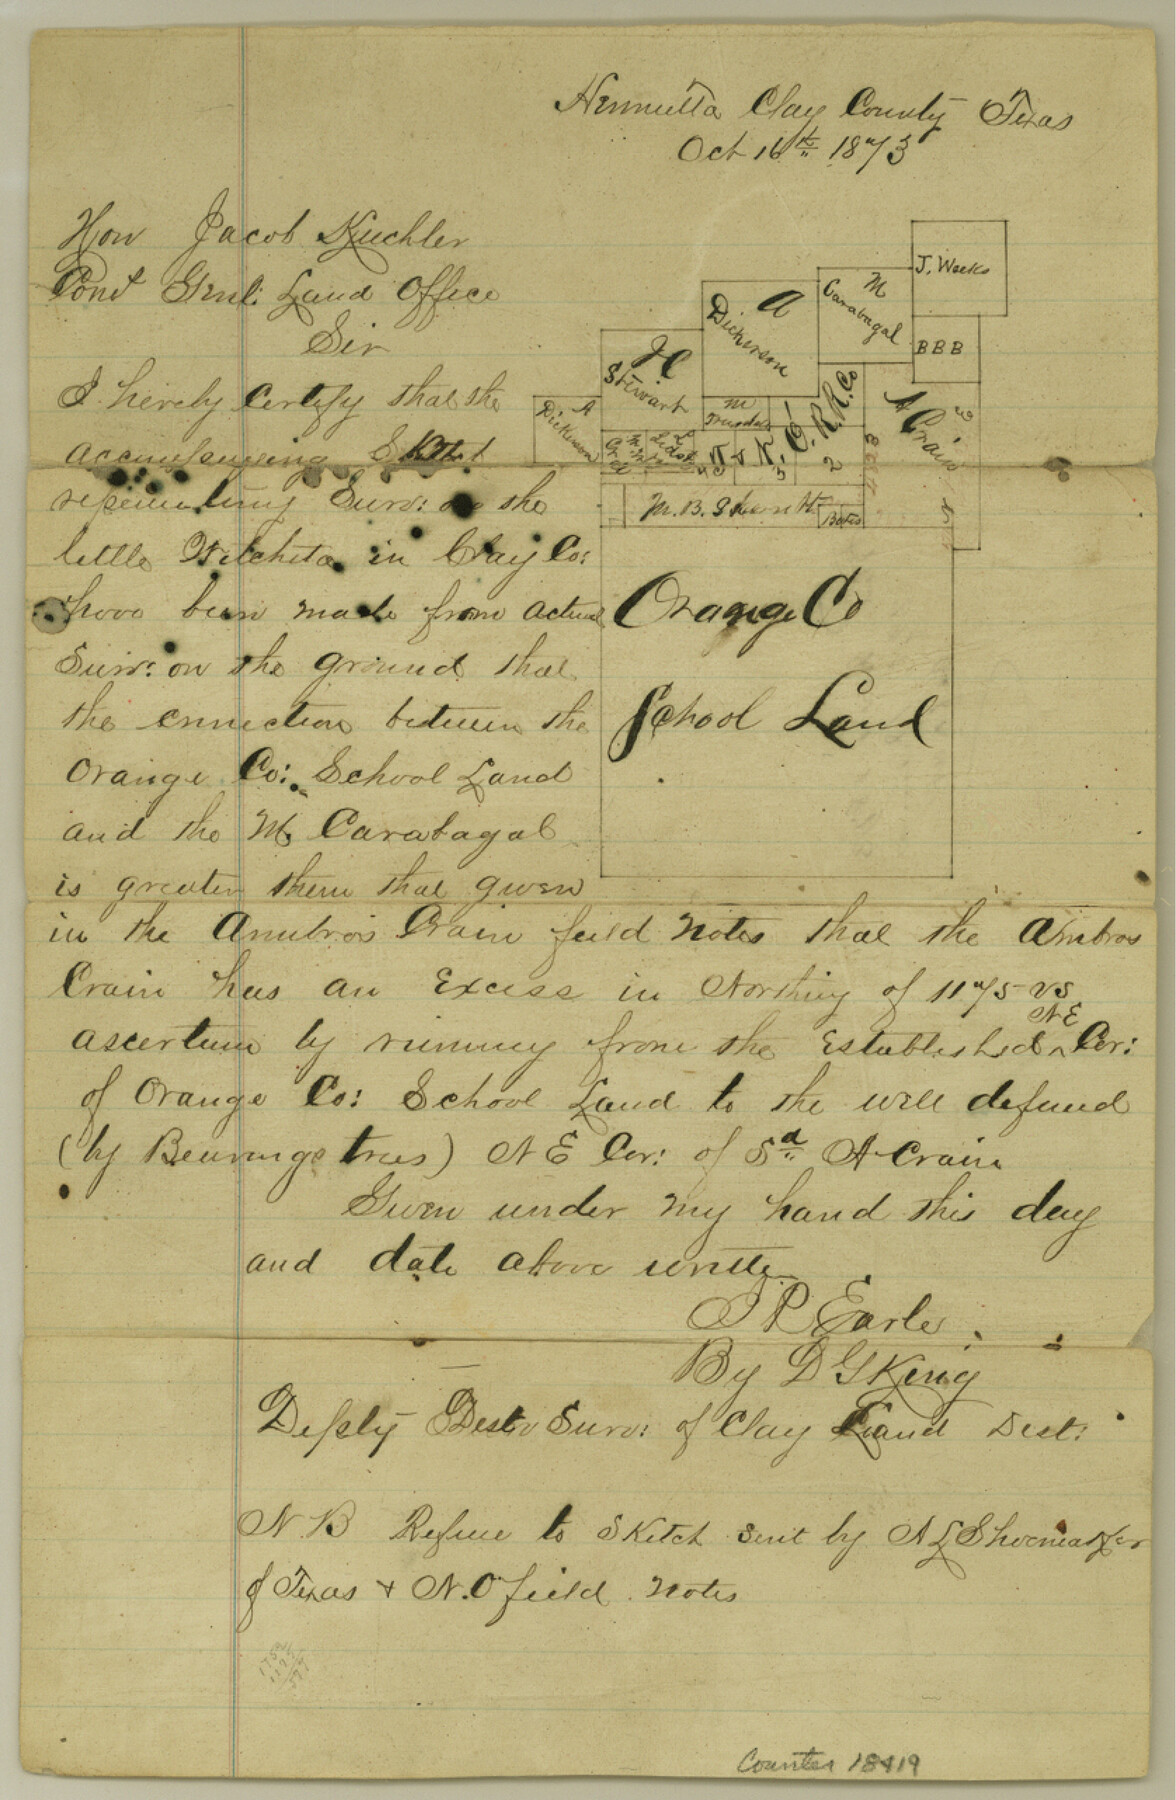 Henrietta Clay County Texas
Oct 16th 1873
Hon Jacob Kuechler
Genl: Land Office
Sir
I hereby Certify that the
accompanying Sketch
representing Surv: on the
little Witchita in Clay Co:
have been made from actual
Surv: on the ground that
the connection between the
Orange Co: School Land
and the M. Carabagal
is greater then that given
in the Ambros Crain field notes that the Ambros
Crain has an Excess in Northing of 1175 vs
ascertain by running from the Established NE Cor:
of Orange Co: School Land to the well defined
(by Bearings trees) N E Cor: of Sd A Crain
Given under my hand this day
and date above written
J P Earle
By D G King
Deputy Dist Surv: of Clay Land Dist:
N B Refer to Sketch sent by A L Shoemaker
of Texas & N.O field notes
J. Weeks
M
Carabagal
B B B
A
Dickerson
H
Stewart
A
Dickerson
M
R.R. Co
3
2
A Crain
M. B.
Bates
Orange Co
School Land
1752
1175
577
Counter 18419